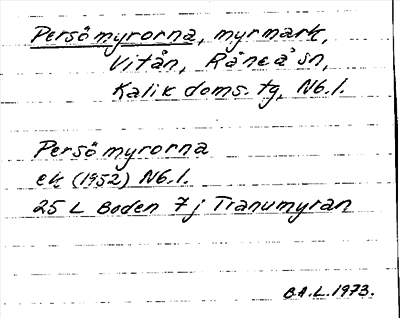 Persömyrorna, myrmark,
Vitån, Råneå sn,
Kalix doms. tg, Nb.l.
Persömyrorna
ek (1952) Nb.l.
25 L Boden 7j Tranumyran
B.A.L. 1973.